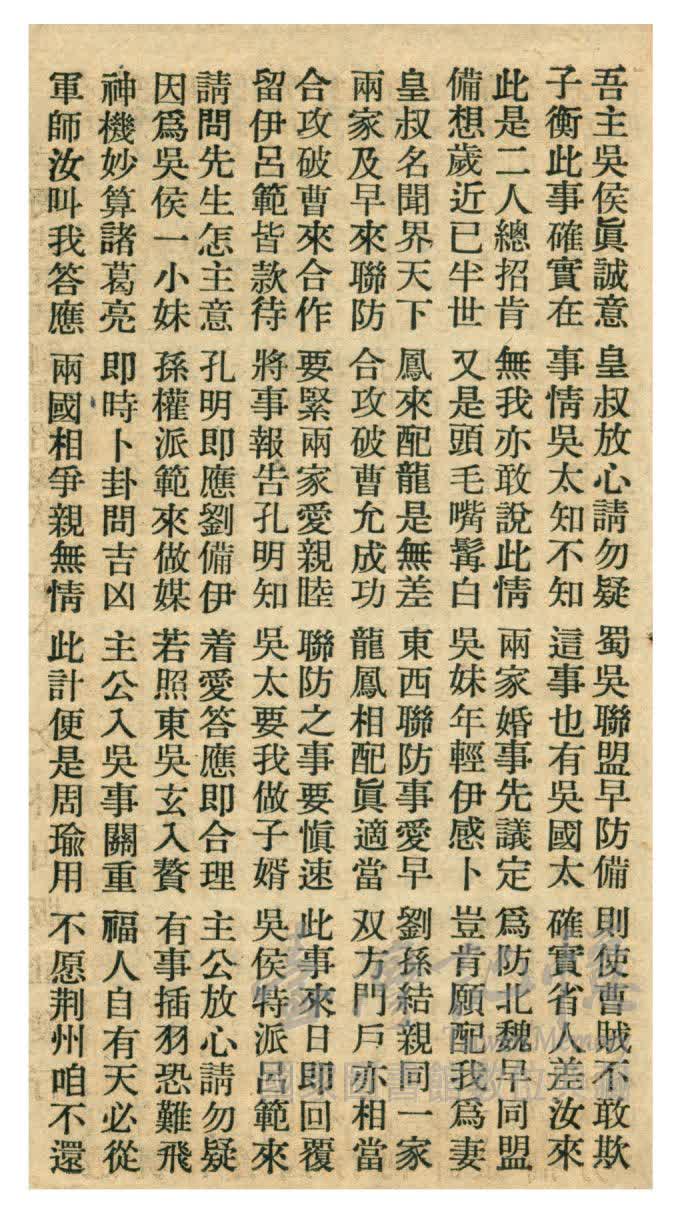 吾主吳侯眞誠意 皇叔放心請勿疑 蜀吳聯盟早防備 則使曹賊不敢欺
子衡此事確實在 事情吳太知不知 這事也有吳國太 確實省人差汝來
此是二人總招肯 無我亦敢說此情 兩家婚事先議定 爲防北魏早同盟
備想歲近已半世 又是頭毛嘴髯白 吳妹年輕伊感卜 豈肯願配我爲妻
皇叔名聞界天下 鳳來配龍是無差 東西聯防事愛早 劉孫結親同一家
兩家及早來聯防 合攻破曹允成功 龍鳳相配眞適當 双方門戶亦相當
合攻破曹來合作 要緊兩家愛親睦 聯防之事要愼速 此事來日即回覆
留伊呂範皆款待 將事報告孔明知 吳太要我做子婿 吳侯特派呂範來
請問先生怎主意 孔明即應劉備伊 着愛答應即合理 主公放心請勿疑
因爲吳侯一小妹 孫權派範來做媒 若照東吳玄入贅 有事插羽恐難飛
神機妙算諸葛亮 即時卜卦問吉凶 主公入吳事關重 福人自有天必從
軍師汝叫我答應 兩國相爭親無情 此計便是周瑜用 不愿荆州咱不還